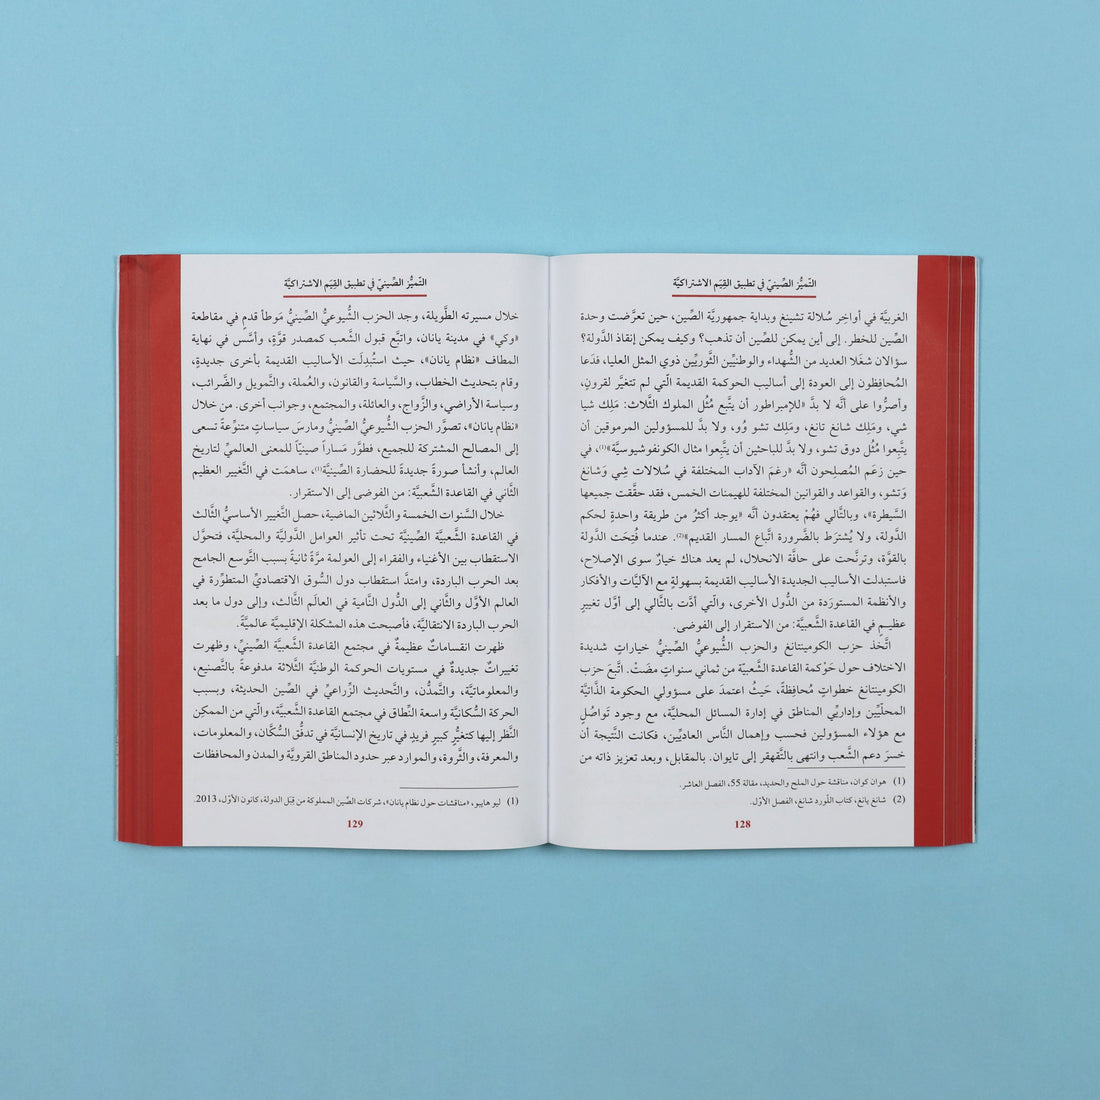 التّميُّز الصِّينيّ في تطبيق القِيَم الاشتراكيَّة
الغربيَّة في أواخِر سُلالة تشينغ وبداية جمهوريَّة الصِّين، حين تعرَّضت وحدة
الصِّين للخطر. إلى أين يمكن للصِّين أن تذهب؟ وكيف يمكن إنقاذ الدَّولة؟
سؤالان شغَلا العديد من الشُّهداء والوطنيِّين الثَّوريِّين ذوي المثل العليا، فدَعا
المُحافِظون إلى العودة إلى أساليب الحوكمة القديمة الّتي لم تتغيَّر لقرونٍ،
وأصرُّوا على أنَّه لا بدَّ «للإمبراطور أن يتَّبع مُثُل الملوك الثَّلاث: مَلِك شيا
شي، ومَلِك شانغ تانغ، ومَلِك تشو وُو، ولا بدَّ للمسؤولين المرموقين أن
يتَّبِعوا مُثُل دوق تشو، ولا بدَّ للباحثين أن يتَّبِعوا مثال الكونفوشيوسيَّة»(1)، في
حين زعَم المُصلِحون أنَّه «رغمَ الآداب المختلفة في سُلالات شِي وَشانغ
وَتشو، والقواعد والقوانين المختلفة للهيمنات الخمس، فقد حقَّقت جميعها
السَّيطرة»، وبالتَّالي فهُمْ يعتقدون أنَّه «يوجد أكثرُ من طريقة واحدةٍ لحكم
الدَّولة، ولا يُشترَط بالضَّرورة اتِّباع المسار القديم»(2). عندما فُتِحَت الدَّولة
بالقوَّة، وترنَّحت على حافَّة الانحلال، لم يعد هناك خيارٌ سوى الإصلاح،
فاستبدلت الأساليب الجديدة الأساليب القديمة بسهولةٍ مع الآليَّات والأفكار
والأنظمة المستورَدة من الدُّول الأخرى، والّتي أدَّت بالتَّالي إلى أوَّل تغييرٍ
عظيم في القاعدة الشَّعبيَّة: من الاستقرار إلى الفوضى.
اتَّخذ حزب الكومينتانغ والحزب الشُّيوعيُّ الصِّينيُّ خياراتٍ شديدة
الاختلاف حول حَوْكمة القاعدة الشَّعبيّة من ثماني سنواتٍ مضَتْ. اتَّبعَ حزب
الكومينتانغ خطواتٍ محُافِظةً، حَيثُ اعتمدَ على مسؤولي الحكومة الذَّاتيَّة
المحلِّيِّين وإداريِّي المناطق في إدارة المسائل المحليَّة، مع وجود تَواصُلٍ
مع هؤلاء المسؤولين فحسب وإهمال النَّاس العاديِّين، فكانت النَّتيجة أن
خسرَ دعم الشَّعب وانتهى بالتَّقهقر إلى تايوان. بالمقابل، وبعد تعزيز ذاته من
(1) هوان كوان، مناقشة حول الملح والحديد، مقالة 55، الفصل العاشر.
(2) شانغ يانغ، كتاب اللّورد شانغ، الفصل الأوّل.
128
التّميُّز الصِّينيّ في تطبيق القِيَم الاشتراكيَّة
خلال مسيرته الطَّويلة، وجد الحزب الشُّيوعيُّ الصِّينيُّ مَوطأ قدمٍ في مقاطعة
«وكي» في مدينة يانان، واتبَّع قبول الشَّعب كمصدر قوَّةٍ، وأسَّس في نهاية
المطاف «نظام يانان»، حيث استُبدِلَت الأساليب القديمة بأخرى جديدةٍ،
وقام بتحديث الخطاب، والسِّياسة والقانون، والعُملة، والتَّمويل والضَّرائب،
وسياسة الأراضي، والزَّواج، والعائلة، والمجتمع، وجوانب أخرى. من خلال
«نظام يانان»، تصوَّر الحزب الشُّيوعيُّ الصِّينيُّ ومارسَ سياساتٍ متنوِّعةً تسعى
إلى المصالح المشتركة للجميع، فطوَّر مَساراً صينيّاً للمعنى العالميِّ لتاريخ
العالم، وأنشأ صورةً جديدةً للحضارة الصِّينيَّة(1)، ساهمَت في التَّغيير العظيم
الثَّاني في القاعدة الشَّعبيَّة: من الفوضى إلى الاستقرار.
خلال السَّنوات الخمسة والثَّلاثين الماضية، حصل التَّغيير الأساسيُّ الثَّالث
في القاعدة الشَّعبيَّة الصِّينيَّة تحت تأثير العوامل الدَّوليَّة والمحليَّة، فتحوَّل
الاستقطاب بين الأغنياء والفقراء إلى العولمة مرَّةً ثانيةً بسبب التَّوسع الجامح
بعد الحرب الباردة، وامتدَّ استقطاب دول السُّوق الاقتصاديِّ المتطوِّرة في
العالم الأوَّل والثَّاني إلى الدُّول النَّامية في العالَم الثَّالث، وإلى دول ما بعد
الحرب الباردة الانتقاليَّة، فأصبحت هذه المشكلة الإقليميَّة عالميَّةً.
ظهرت انقساماتٌ عظيمةٌ في مجتمع القاعدة الشَّعبيَّة الصِّينيِّ، وظهرت
تغييراتٌ جديدةٌ في مستويات الحوكمة الوطنيَّة الثَّلاثة مدفوعةً بالتَّصنيع،
والمعلوماتيَّة، والتَّمدُّن، والتَّحديث الزِّراعيِّ في الصِّين الحديثة، وبسبب
الحركة السُّكانيَّة واسعة النِّطاق في مجتمع القاعدة الشَّعبيَّة، والّتي من الممكِن
النَّظر إليها كتغيُّرٍ كبيرٍ فريدٍ في تاريخ الإنسانيَّة في تدفُّق السُّكَّان، والمعلومات،
والمعرفة، والثَّروة، والموارد عبر حدود المناطق القرويَّة والمدن والمحافظات
(1) ليو هايبو، «مناقشات حول نظام يانان»، شركات الصِّين المملوكة من قِبَل الدولة، كانون الأوّل، 2013.
129